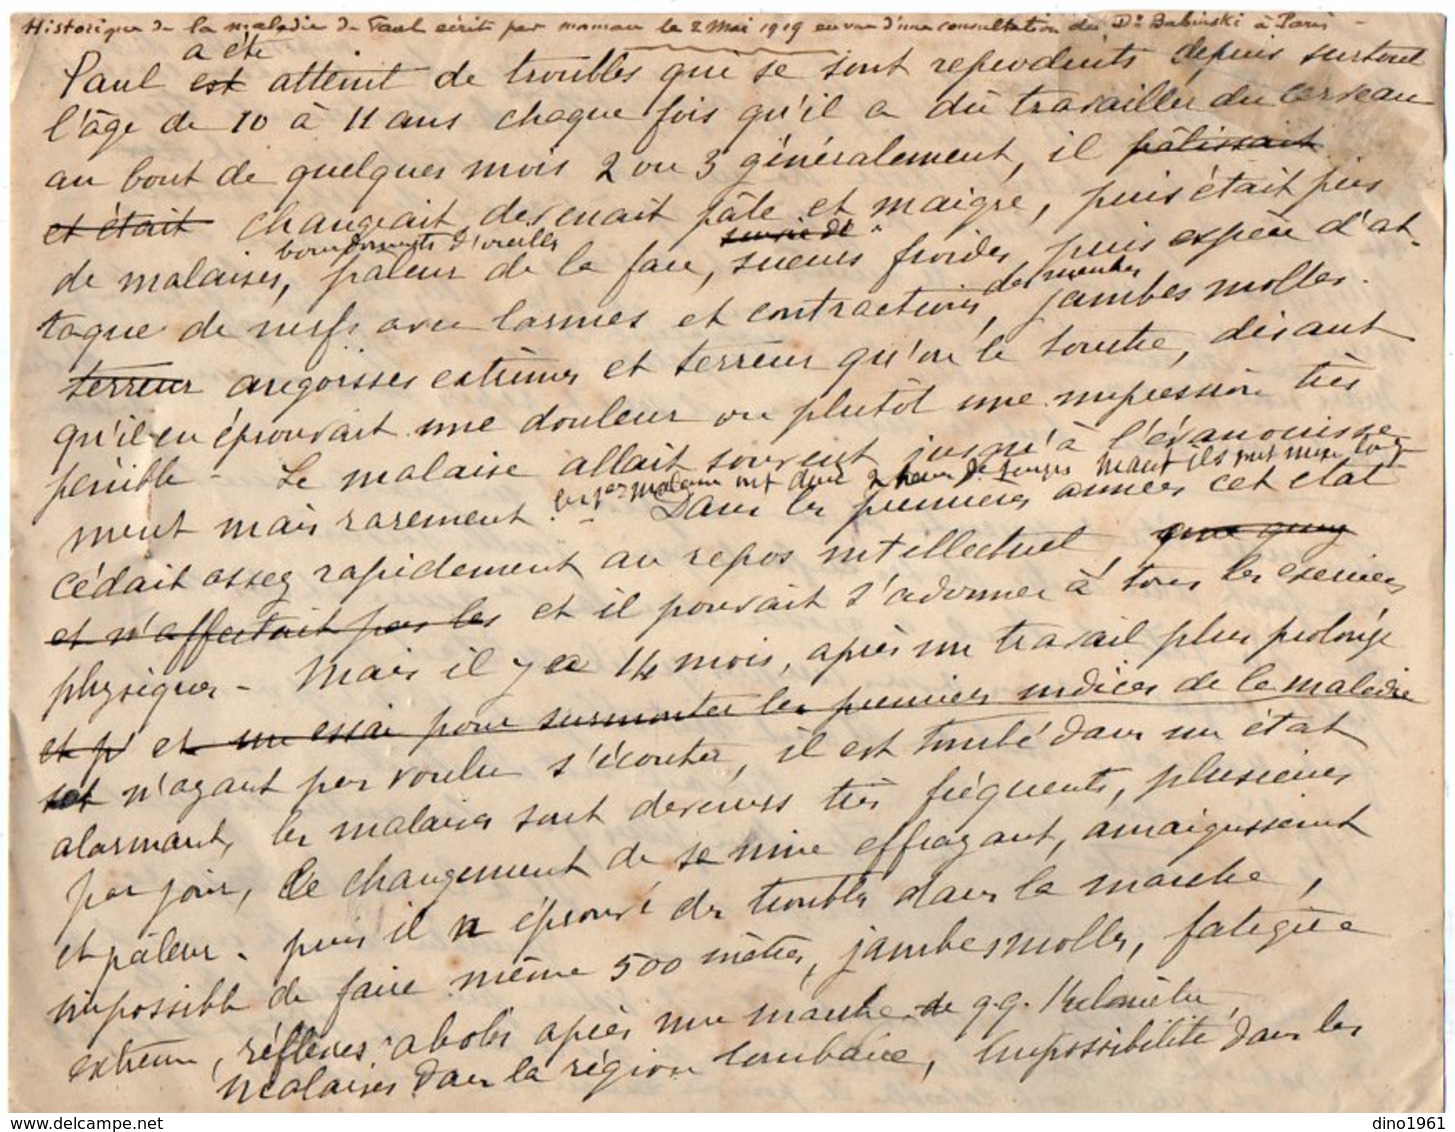 Historique de la maladie de Paul écrite par maman le 2 Mai 1919 en vue d'une consultation du Dr Babinski à Paris -
a été
Paul est atteint de troubles qui se sont reproduits depuis surtout
l'âge de 10 à 11 ans chaque fois qu'il a dû travailler du cerveau
au bout de quelques mois 2 ou 3 généralement, il pâlissait
et était changeait devenait pâle et maigre, puis était pris
bourdonnements d'oreilles
de malaises, pâleur de la face, sueurs froides puis espèce d'at-
des membres
taque de nerfs avec larmes et contractions, jambes molles.
terreur angoisses extrêmes et terreur qu'on le touche, disant
qu'il en éprouvait une douleur ou plutôt une impression très
pénible - Le malaise allait souvent jusqu'à l'évanouisse-
ment mais rarement. Dans les premières années cet état
cédait assez rapidement au repos intellectuel,
et n'affectait pas les et il pouvait s'adonner à tous les exercices
physiques - Mais il y a 14 mois, après un travail plus prolongé
et p et un essai pour surmonter les premiers indices de la maladie
et n'ayant pas voulu s'écouter, il est tombé dans un état
alarmant, les malaises sont devenus très fréquents, plusieurs
par jour, le changement de sa mine effrayant, amaigrissement
et pâleur. puis il a éprouvé des troubles dans la marche,
impossible de faire même 500 mètres, jambes molles, fatigue
extrême, réflexes abolis après une marche de q.q. kilomètres,
malaises dans la région lombaire, impossibilité dans les
dino1961